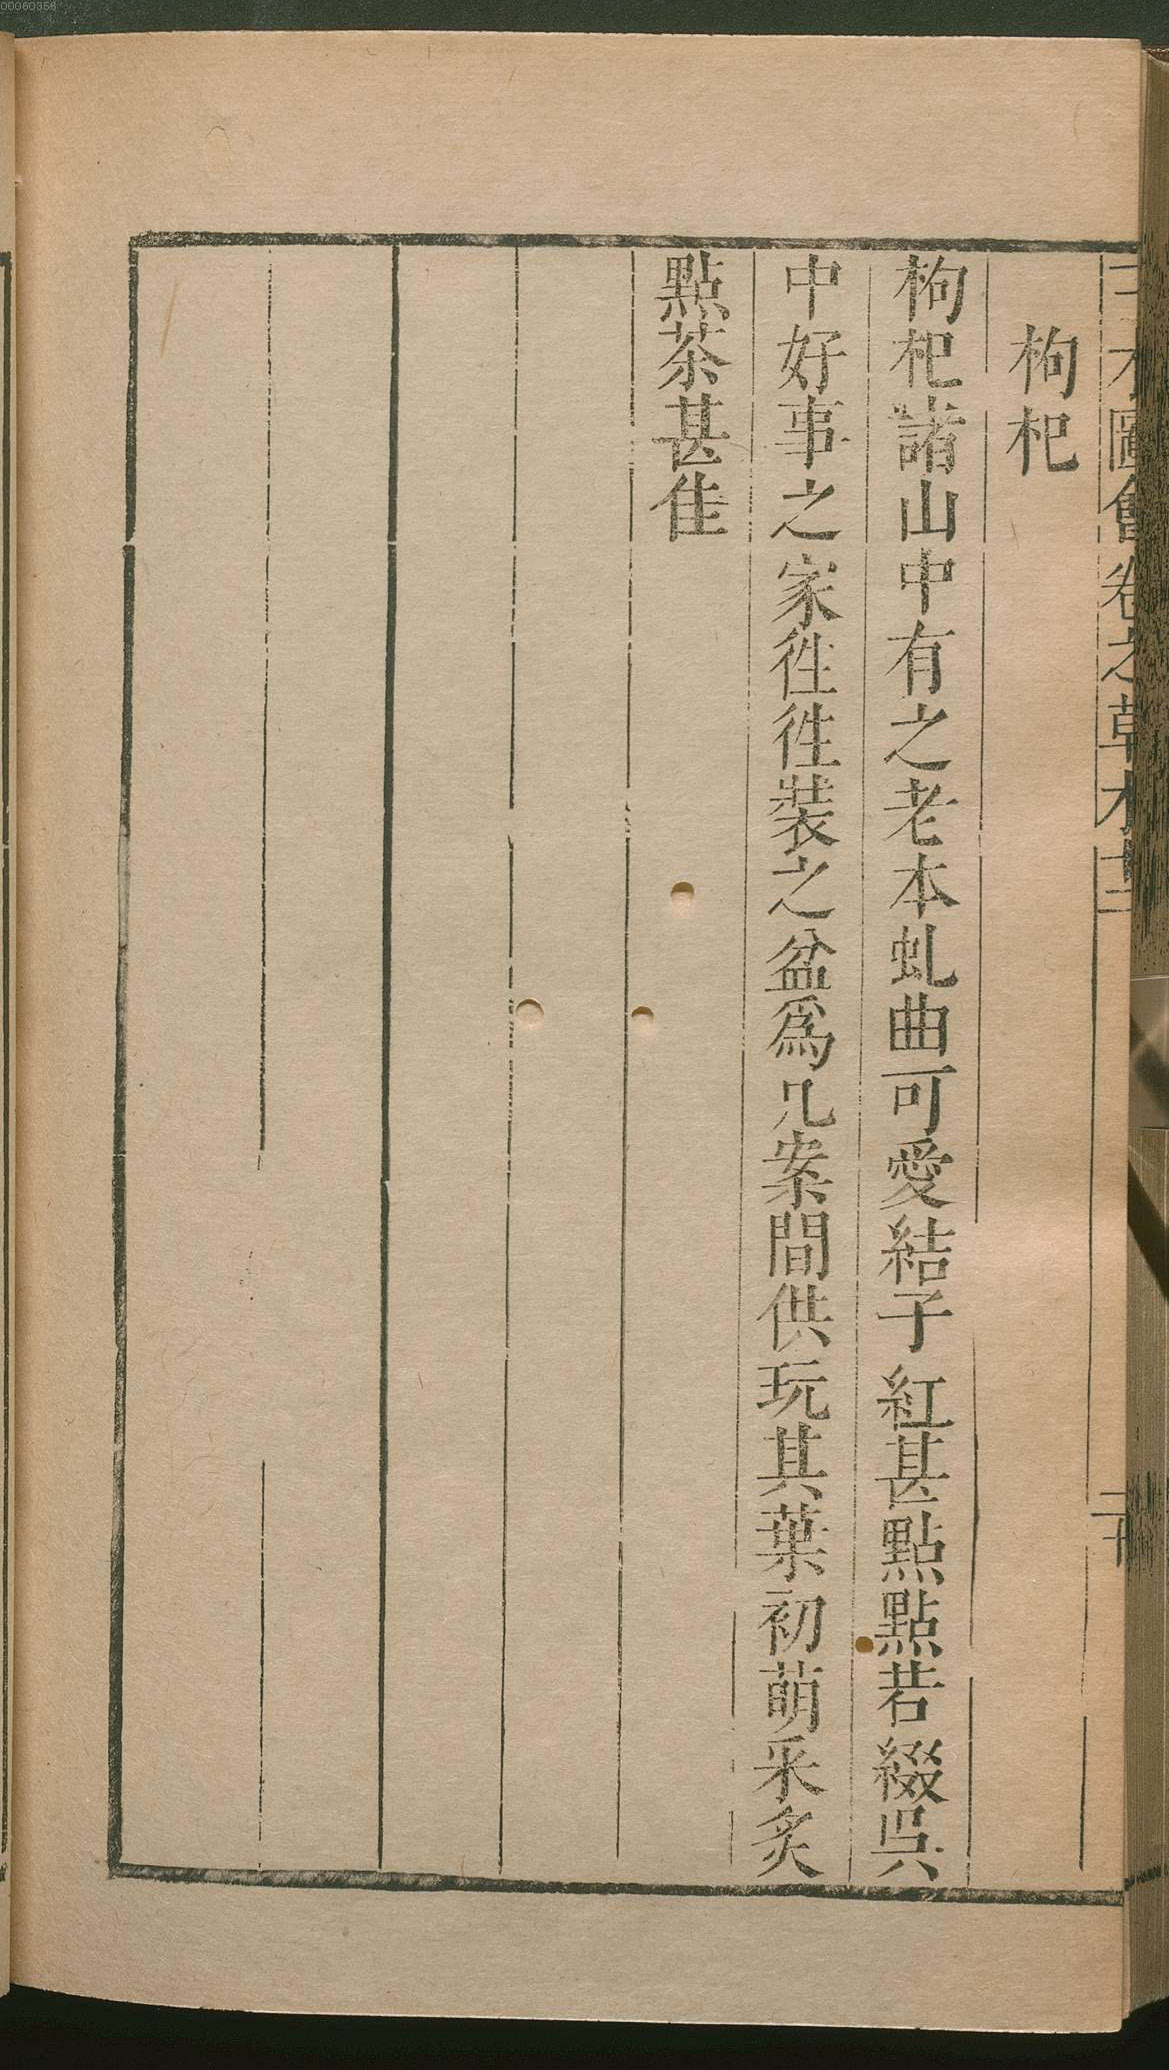 00060356
圖會卷之草木十二
枸杞
枸杞諸山中有之老本虬曲可愛結子紅甚點點若綴吳
中好事之家徃徃裝之盆爲几案間供玩其葉初萌采炙
點茶甚佳